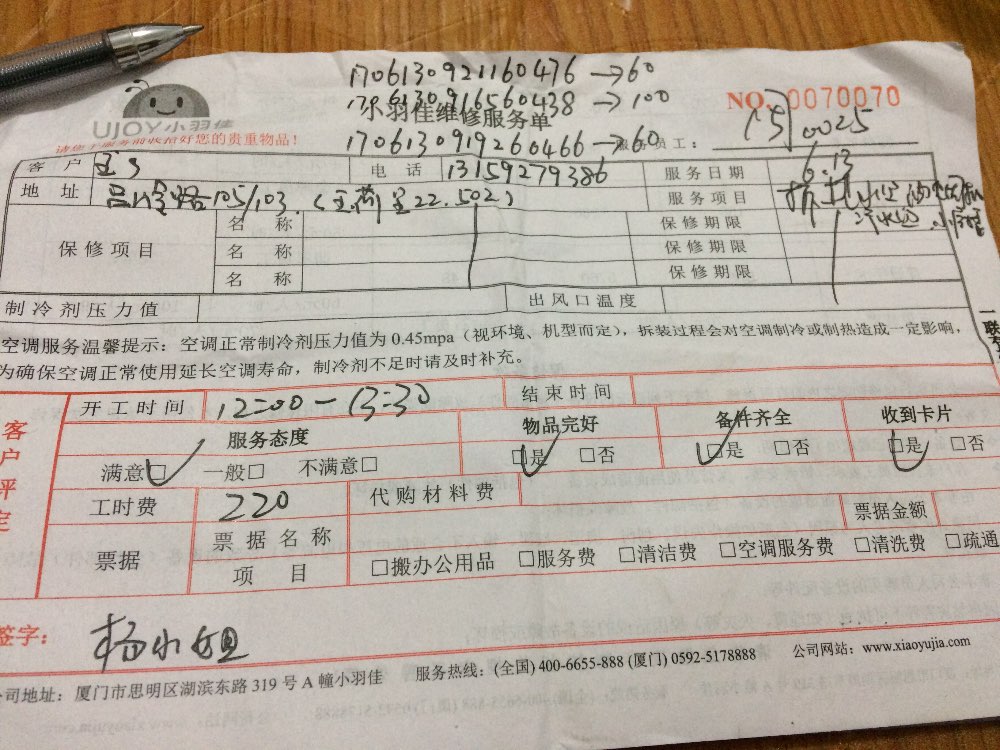 170613092116 0476 →60
170613091656 0438 →100
小羽佳维修服务单
NO. 0070070
UJOY小羽佳
170613091926 0466 →60
服务员工： 0025
贵重物品！
客户 电话 13159279386 服务日期 6.13
地址 105/103 22.502） 服务项目
保修项目 名称 保修期限
名称 保修期限
名称 保修期限
制冷剂压力值 出风口温度
空调服务温馨提示：空调正常制冷剂压力值为 0.45mpa（视环境、机型而定），拆装过程会对空调制冷或制热造成一定影响，
为确保空调正常使用延长空调寿命，制冷剂不足时请及时补充。
客户评定
开工时间 12:00-13:30 结束时间
服务态度 物品完好 备件齐全 收到卡片
满意□ 一般□ 不满意□ □是 □否 □是 □否 □是 □否
工时费 220 代购材料费
票据 票据名称 票据金额
项目 □搬办公用品 □服务费 □清洁费 □空调服务费 □清洗费 □疏通
签字： 杨小姐
公司地址：厦门市思明区湖滨东路 319 号 A 幢小羽佳 服务热线：(全国) 400-6655-888 (厦门) 0592-5178888 公司网站：www.xiaoyujia.com